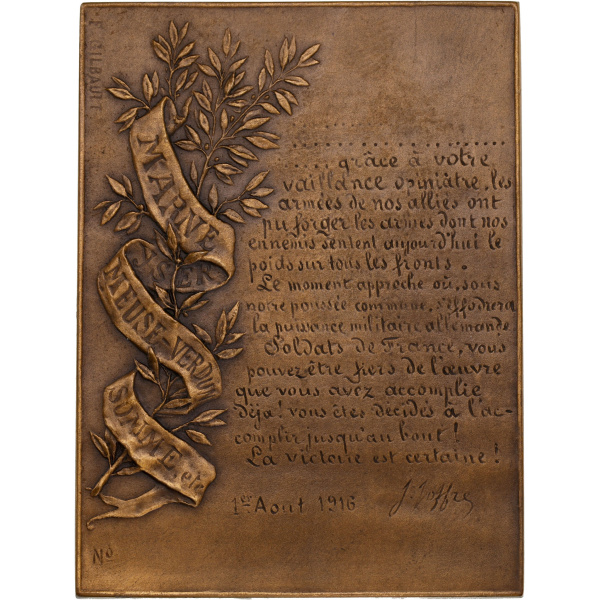 F. GILBAULT
MARNE
YSER
MEUSE-VERDUN
SOMME etc
........................
..... grâce à votre
vaillance opiniâtre, les
armées de nos alliés ont
pu forger les armes dont nos
ennemis sentent aujourd'hui le
poids sur tous les fronts.
Le moment approche où, sous
notre poussée commune, s'effondrera
la puissance militaire allemande
Soldats de France, vous
pouvez être fiers de l'œuvre
que vous avez accomplie
déja! vous êtes décidés à l'ac-
complir jusqu'au bout!
La victoire est certaine!
1er Aout 1916 J. Joffre
No